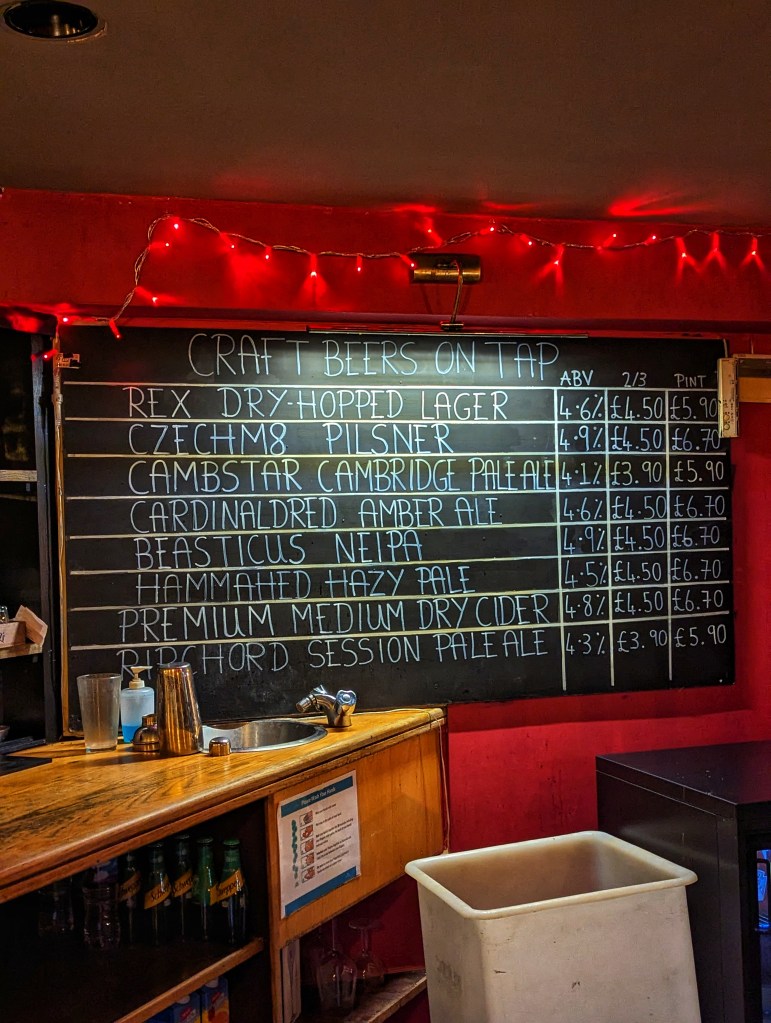 CRAFT BEERS ON TAP ABV 2/3 PINT
REX DRY-HOPPED LAGER 4.6% £4.50 £5.90
CZECHM8 PILSNER 4.9% £4.50 £6.70
CAMBSTAR CAMBRIDGE PALE ALE 4.1% £3.90 £5.90
CARDINALDRED AMBER ALE 4.6% £4.50 £6.70
BEASTICUS NEIPA 4.9% £4.50 £6.70
HAMMAHED HAZY PALE 4.5% £4.50 £6.70
PREMIUM MEDIUM DRY CIDER 4.8% £4.50 £6.70
RIPCHORD SESSION PALE ALE 4.3% £3.90 £5.90